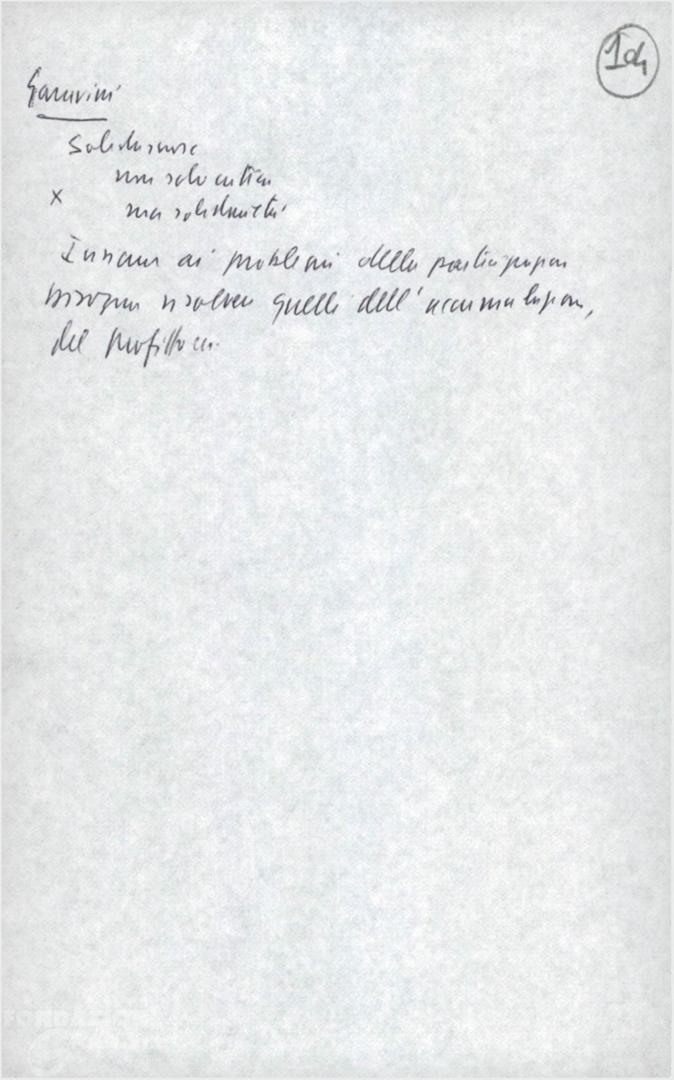 1d4
Garavini
Solidarismo
non
x ma solidarietà
Innanzi ai problemi della partecipazione
bisogna risolvere quelli dell'accumulazione,
del profitto ecc.
FONDAZIONE